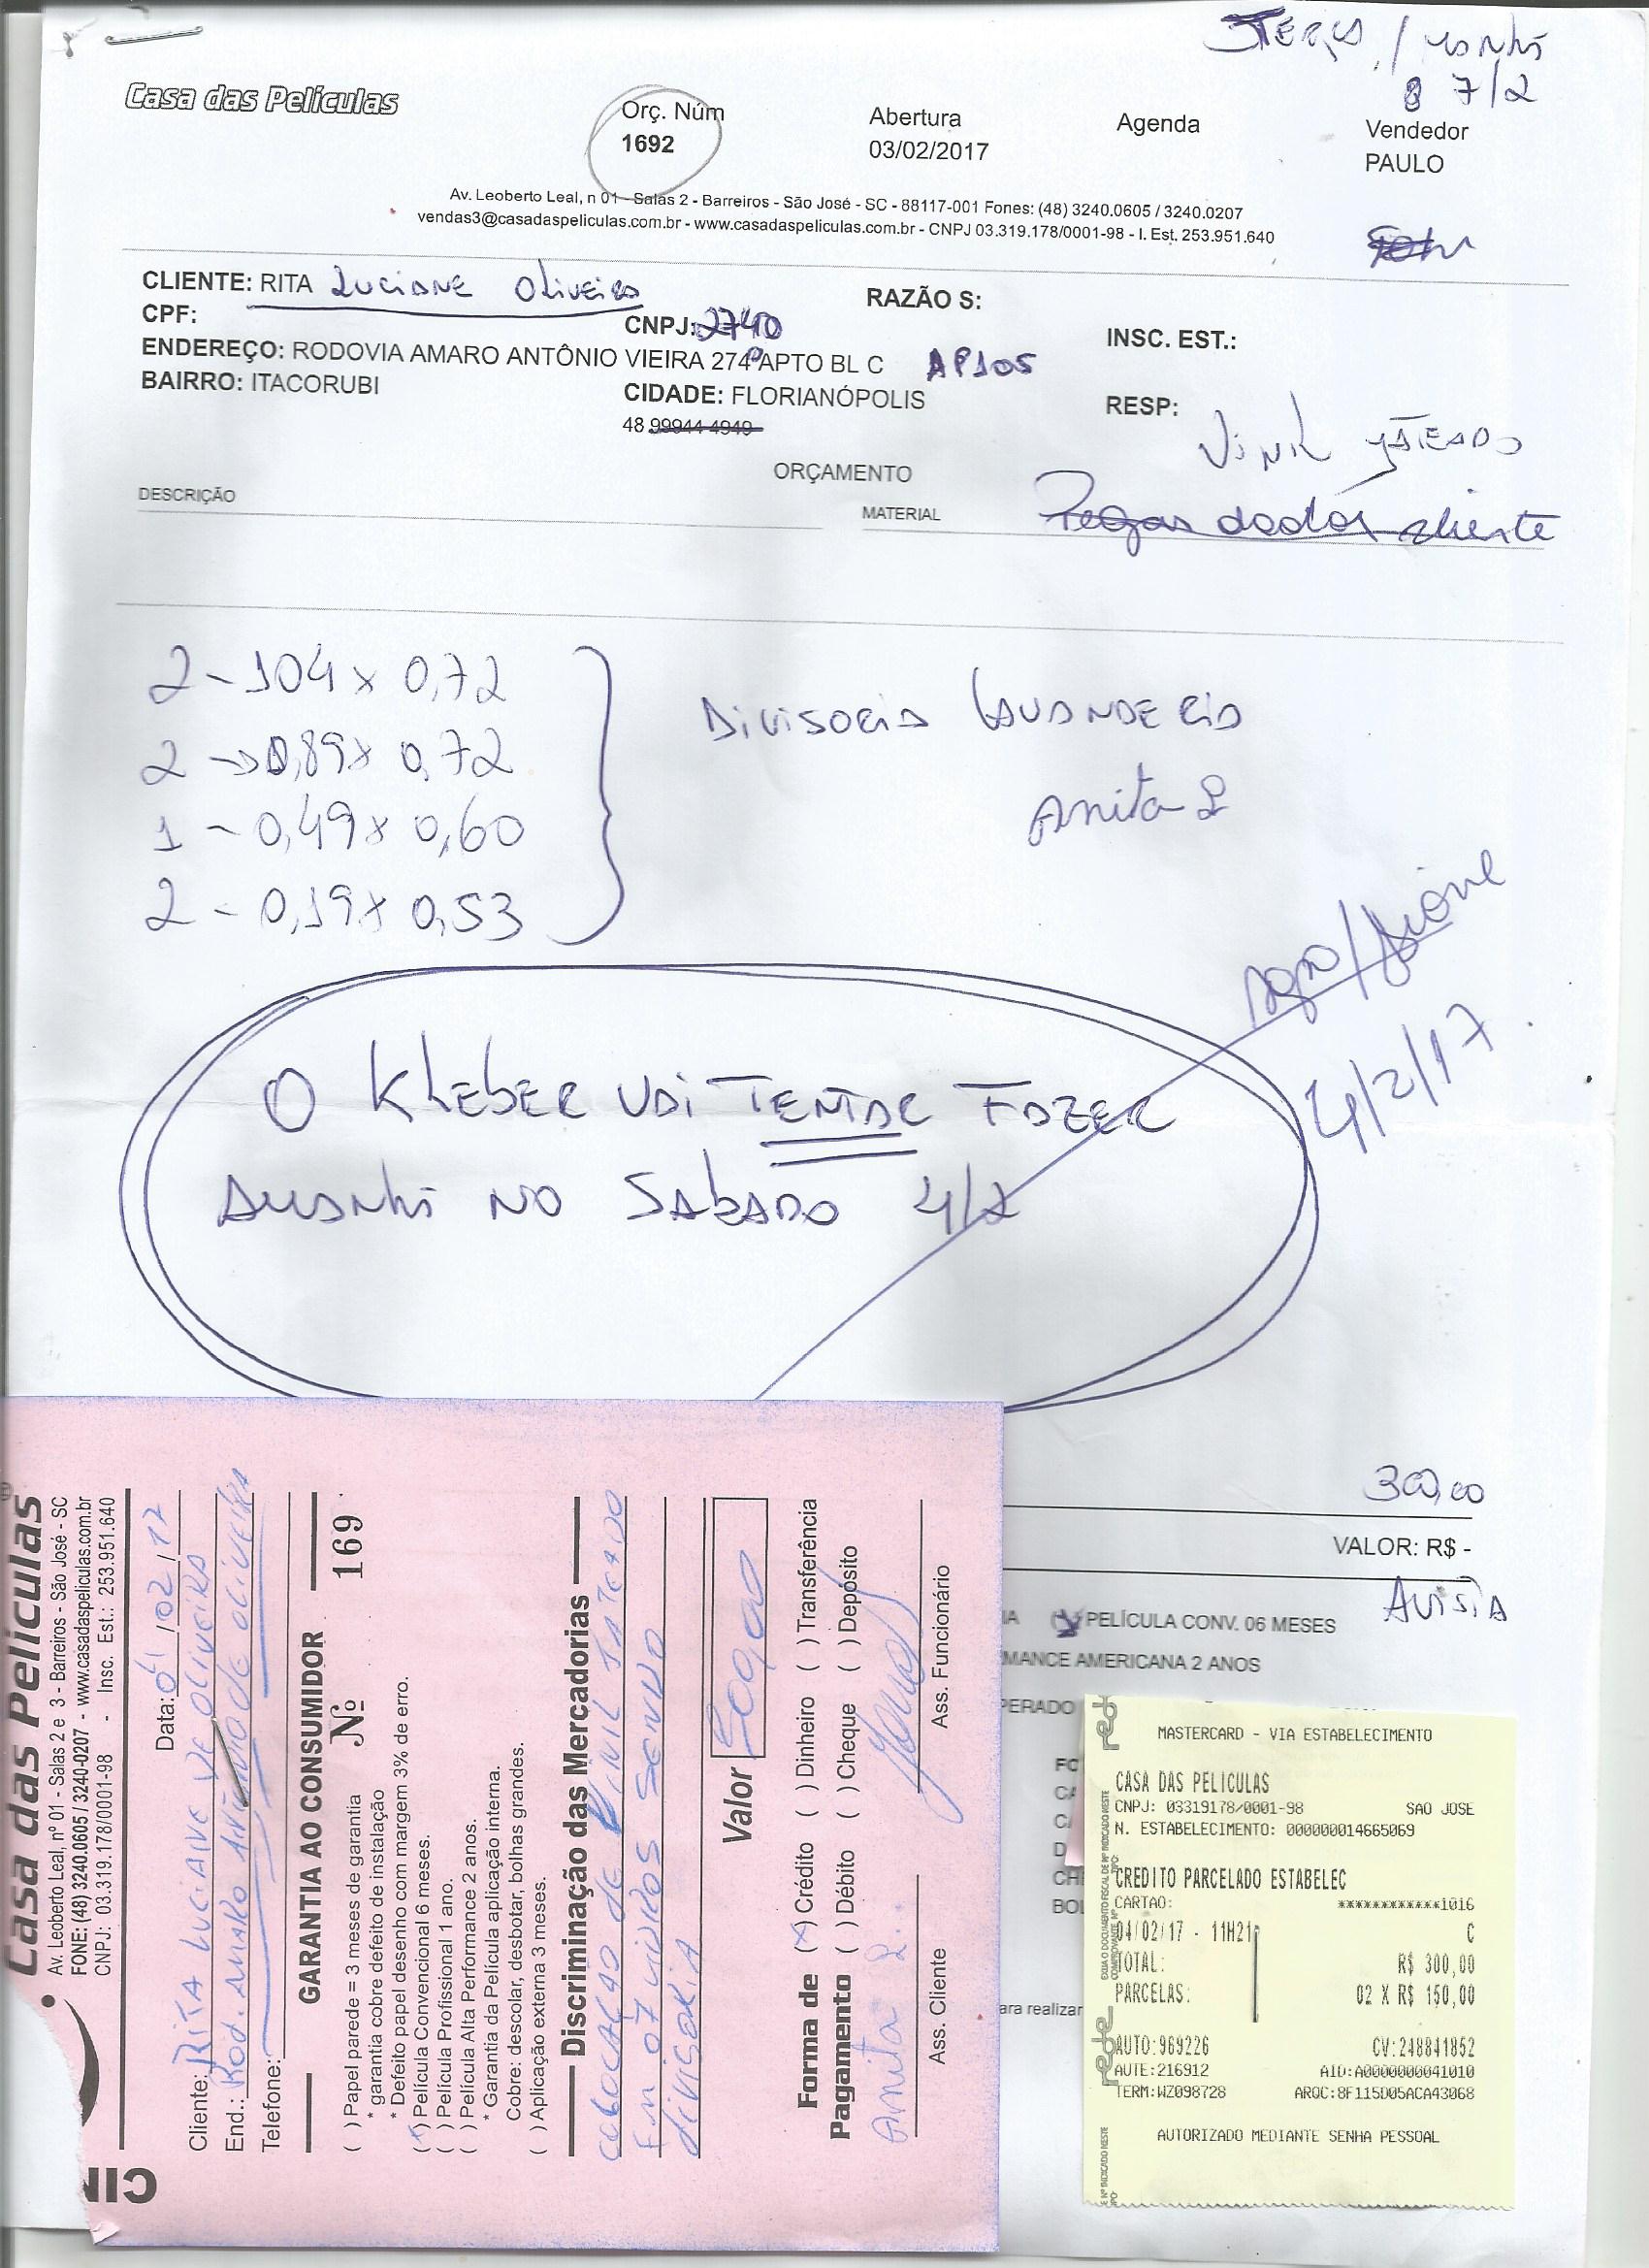 TERÇA / MANHÃ
8 7/2
Casa das Películas
Orç. Núm
1692
Abertura
03/02/2017
Agenda
Vendedor
PAULO
Av. Leoberto Leal, n 01 - Salas 2 - Barreiros - São José - SC - 88117-001 Fones: (48) 3240.0605 / 3240.0207
vendas3@casadaspeliculas.com.br - www.casadaspeliculas.com.br - CNPJ 03.319.178/0001-98 - I. Est. 253.951.640
CLIENTE: RITA LUCIANE OLIVEIRA
RAZÃO S:
CPF:
CNPJ: 2740
INSC. EST.:
ENDEREÇO: RODOVIA AMARO ANTÔNIO VIEIRA 2740 APTO BL C AP105
BAIRRO: ITACORUBI
CIDADE: FLORIANÓPOLIS
RESP:
48 99944-4949
VINIL JATEADO
ORÇAMENTO
DESCRIÇÃO
MATERIAL
Pegar dados cliente
2 - 104 x 0,72
2 -> 0,89 x 0,72
1 - 0,49 x 0,60
2 - 0,19 x 0,53
DIVISORIA LAVANDERIA
Anita L
4/2/17.
O KLEBER VAI TENTAR FAZER
AMANHÃ NO SABADO 4/2
300,00
VALOR: R$ -
AVISTA
IA PELÍCULA CONV. 06 MESES
MANCE AMERICANA 2 ANOS
PERADO
FO
CA
CA
D
CH
BOL
ara realizar
Casa das Películas
Av. Leoberto Leal, nº 01 - Salas 2 e 3 - Barreiros - São José - SC
FONE: (48) 3240.0605 / 3240-0207 - www.casadaspeliculas.com.br
CNPJ: 03.319.178/0001-98 - Insc. Est.: 253.951.640
Data: 04/02/17
Cliente: RITA LUCIANE DE OLIVEIRA
End.: Rod. AMARO ANTÔNIO DE OLIVEIRA
Telefone:
GARANTIA AO CONSUMIDOR
Nº 169
( ) Papel parede = 3 meses de garantia
* garantia cobre defeito de instalação
* Defeito papel desenho com margem 3% de erro.
(X) Película Convencional 6 meses.
( ) Película Profissional 1 ano.
( ) Película Alta Performance 2 anos.
* Garantia da Película aplicação interna.
Cobre: descolar, desbotar, bolhas grandes.
( ) Aplicação externa 3 meses.
Discriminação das Mercadorias
COLOCAÇÃO de VINIL JATEADO
Em 07 VIDROS SENDO
divisoria
Valor 300,00
Forma de Pagamento
(X) Crédito ( ) Dinheiro ( ) Transferência
( ) Débito ( ) Cheque ( ) Depósito
Anita L..
Ass. Cliente
Ass. Funcionário
rede
MASTERCARD - VIA ESTABELECIMENTO
CASA DAS PELICULAS
CNPJ: 03319178/0001-98 SAO JOSE
N. ESTABELECIMENTO: 000000014665069
CREDITO PARCELADO ESTABELEC
CARTAO: ************1016
04/02/17 - 11H21 C
TOTAL: R$ 300,00
PARCELAS: 02 X R$ 150,00
AUTO:969226 CV:248841852
AUTE:216912 AID:A0000000041010
TERM:WZ098728 ARQC:8F115D05ACA43068
AUTORIZADO MEDIANTE SENHA PESSOAL
rede